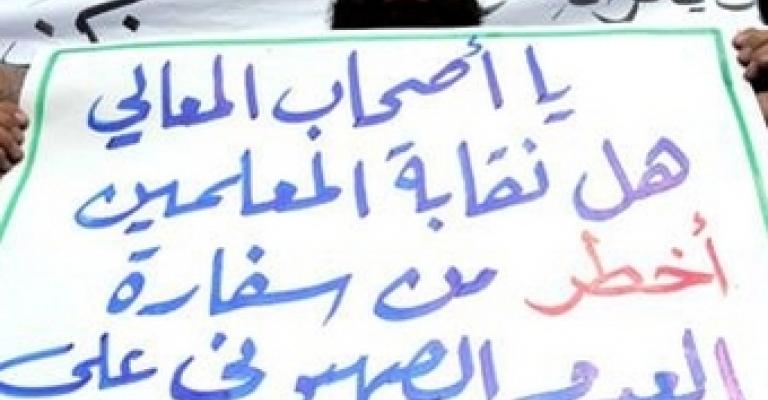 يا أصحاب المعالي
هل نقابة المعلمين
أخطر من سفارة
العدو الصهيوني على